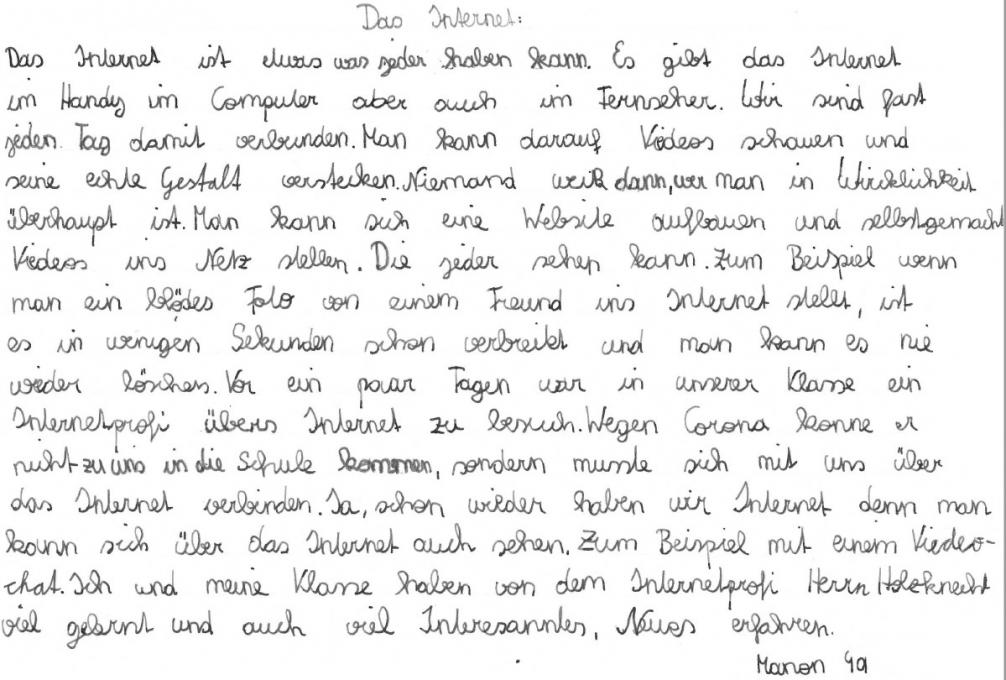 Das Internet:
Das Internet ist etwas was jeder haben kann. Es gibt das Internet
im Handy im Computer aber auch im Fernseher. Wir sind fast
jeden Tag damit verbunden. Man kann darauf Videos schauen und
seine echte Gestalt verstecken. Niemand weiß dann, wer man in Wircklichkeit
überhaupt ist. Man kann sich eine Website aufbauen und selbstgemacht
Viedeos ins Netz stellen. Die jeder sehen kann. Zum Beispiel wenn
man ein blödes Foto von einem Freund ins Internet stellt, ist
es in wenigen Sekunden schon verbreitet und man kann es nie
wieder löschen. Vor ein paar Tagen war in unserer Klasse ein
Internetprofi übers Internet zu besuch. Wegen Corona konne er
nicht zu uns in die Schule kommen, sondern musste sich mit uns über
das Internet verbinden. Ja, schon wieder haben wir Internet denn man
kann sich über das Internet auch sehen. Zum Beispiel mit einem Viedeo-
chat. Ich und meine Klasse haben von dem Internetprofi Herrn Holzknecht
viel gelernt und auch viel Interesanntes, Neues erfahren.
Manon 4a